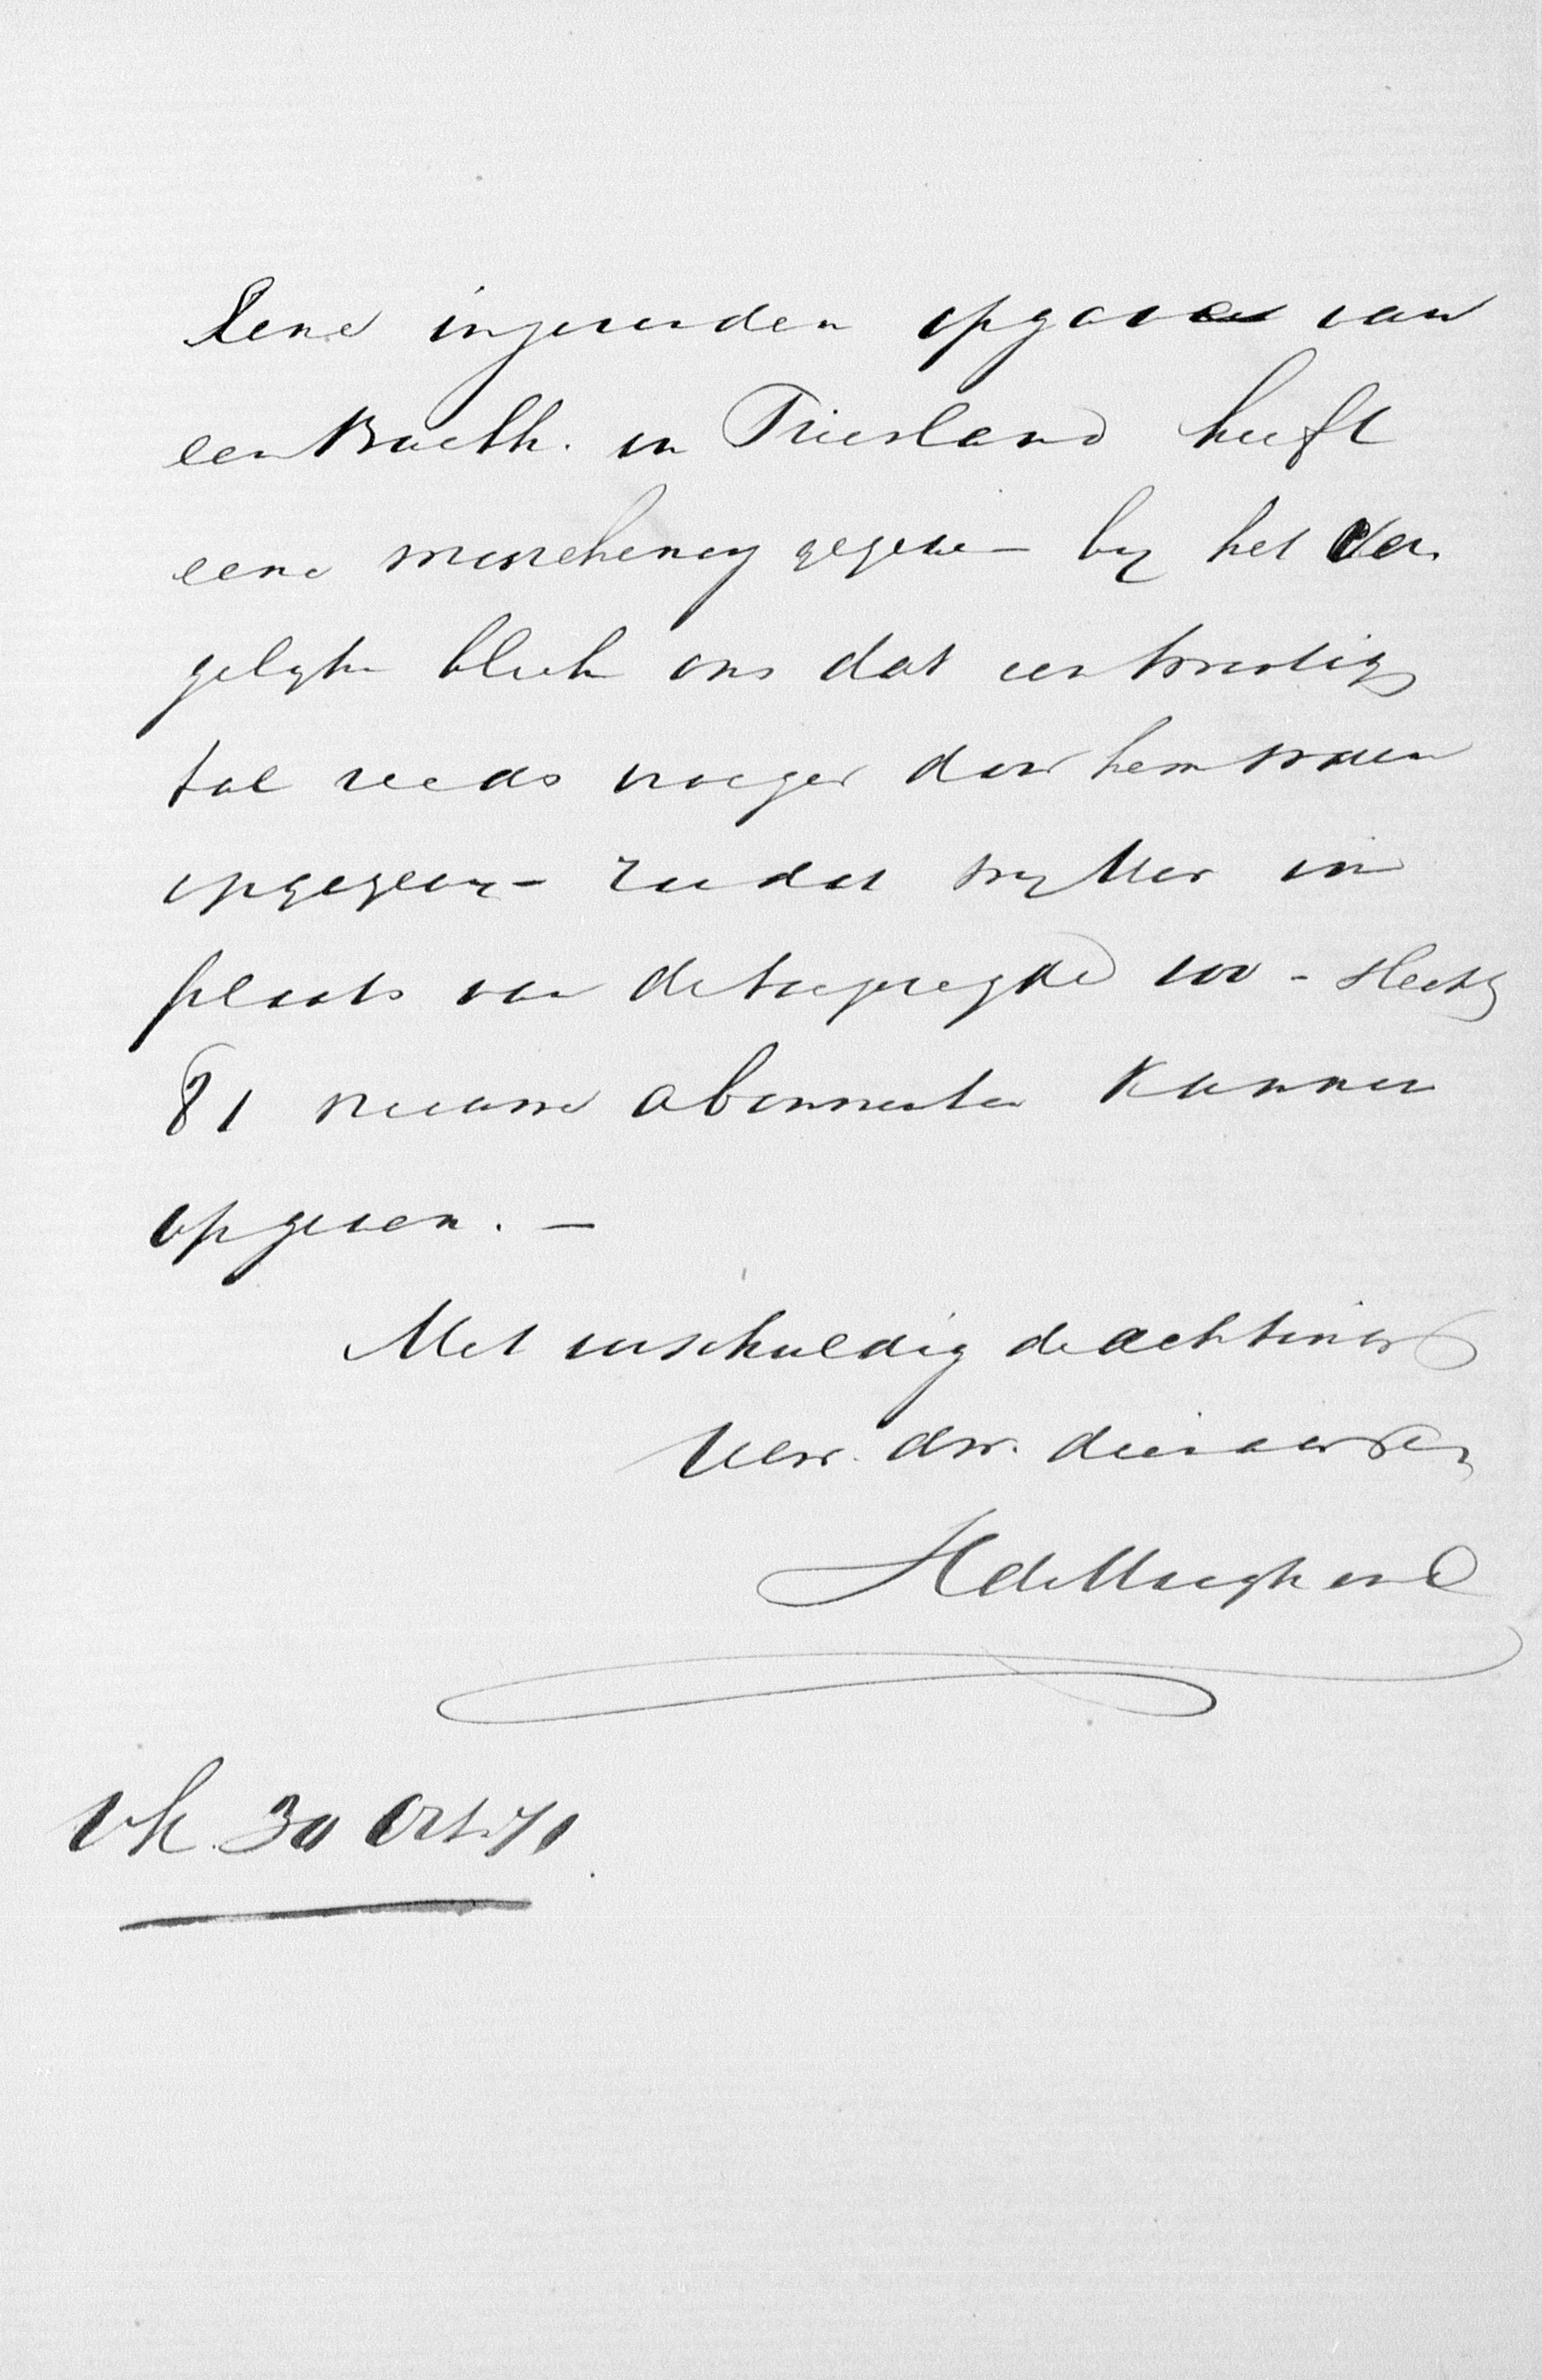 Eene ingezonden opgave van
een Boekh. in Friesland heeft
eene misrekening gegeven by het ver
gelyken bleek ons dat een twintig
tal reeds vroeger door hem waren
opgegeven – zoodat wy Uw in
plaats van de toegezegde 100 – slechts
81 nieuwe abonnenten kunnen
opgeven. –
Met verschuldigde achting
UEw. dw. dienaren
30 Oct. 71